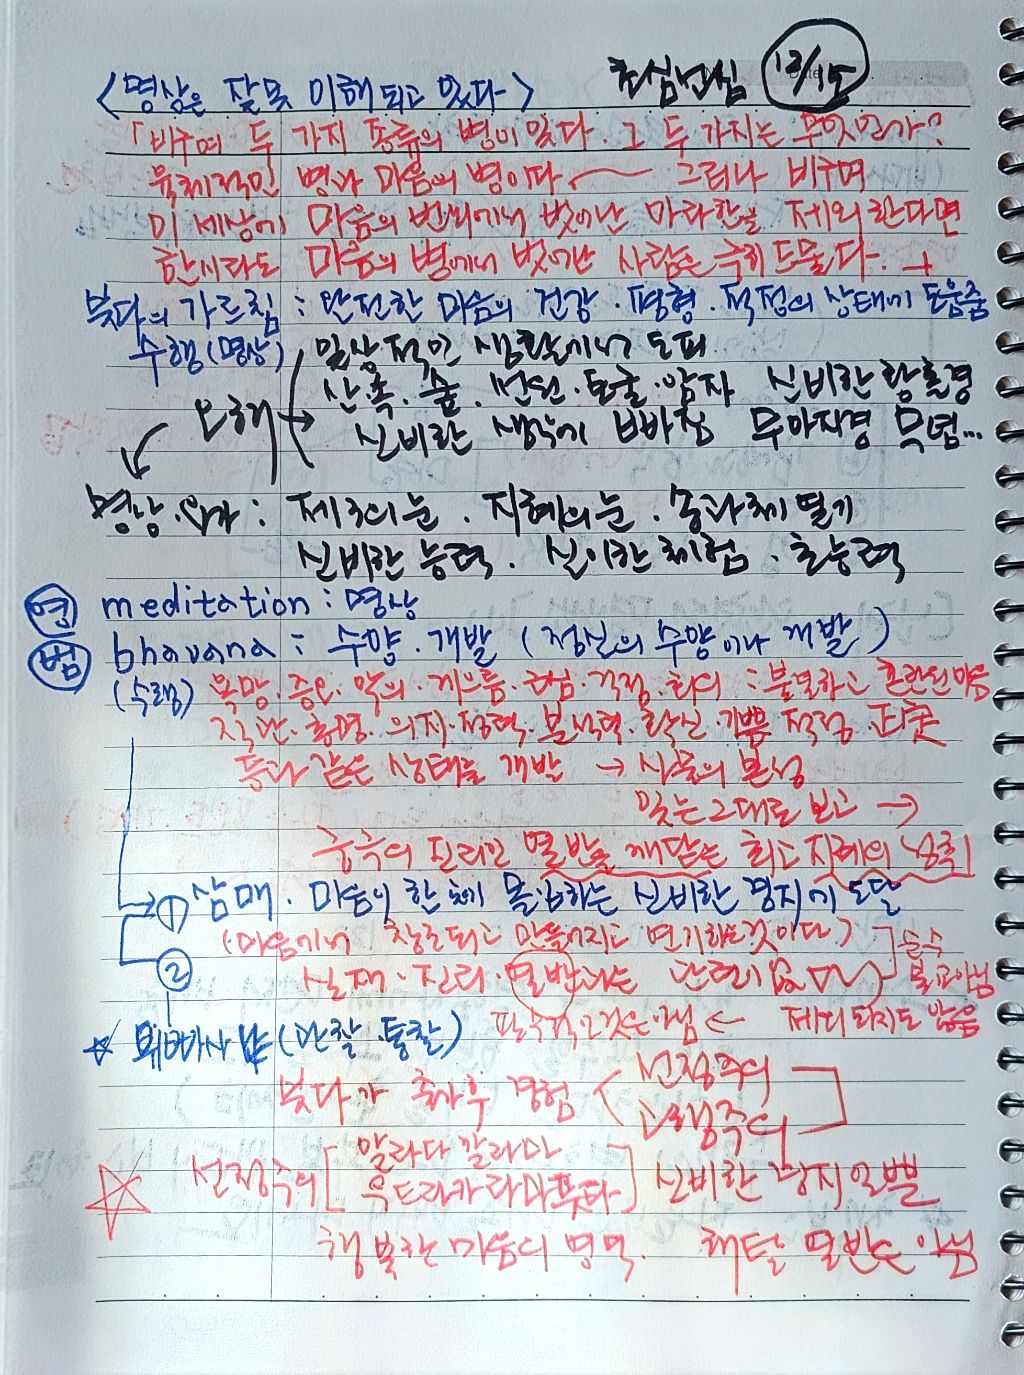 <명상은 잘못 이해되고 있다> 초심선심 12/15
「비구여 두 가지 종류의 병이 있다. 그 두 가지는 무엇인가?
육체적인 병과 마음의 병이다 ~ 그러나 비구여
이 세상에 마음의 번뇌에서 벗어난 아라한을 제외한다면
한시라도 마음의 병에서 벗어난 사람은 극히 드물다.
붓다의 가르침 : 완전한 마음의 건강 · 평형 · 적정의 상태에 도움줌
수행(명상) 일상적인 생활에서 도피
산속 · 숲 · 선원 · 토굴 · 암자 신비한 황홀경
오해 → 신비한 생각에 빠짐 무아지경 무념...
명상 · 요가 : 제3의 눈 · 지혜의 눈 · 송과체 열기
신비한 능력 · 신이한 체험 · 초능력
영 meditation : 명상
범 bhavana : 수양 · 개발 (정신의 수양이나 개발)
(수행) 욕망 · 증오 · 악의 · 게으름 · 걱정 · 회의 : 불결하고 혼란된 마음
직관 · 총명 · 의지 · 정력 · 분석력 · 확신 · 기쁨 적정 正定
등과 같은 상태를 개발 → 사물의 본성
있는 그대로 보고 →
궁극의 진리인 열반을 깨닫는 최고 지혜의 성취
① 삼매 · 마음의 한 몰입하는 신비한 경지에 도달
(마음에서 창조되고 만들어지고 변기하는 것이다) 순수
② 실재 · 진리 · 열반과는 관련이 없 불교아님
☆ 위빠사나 (관찰 · 통찰) 필수적인 것은 아님 ← 제외되지도 않음
붓다가 출가후 경험 < 선정주의
고행주의
☆ 선정주의 [ 알라다 깔라마
우드라카 라마풋다 ] 신비한 경지일뿐
행복한 마음의 영역. 해탈 열반은 아님